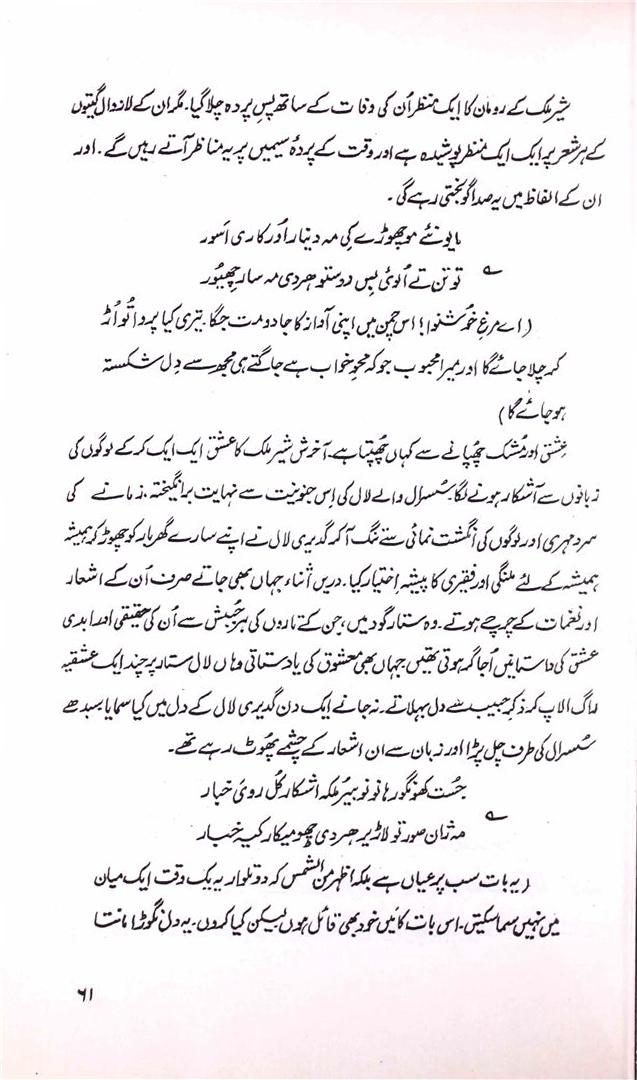 شیر ملک کے رومان کا ایک منظر اُن کی وفات کے ساتھ پسِ پردہ چلا گیا۔ مگر ان کے لازوال گیتوں
کے ہر شعر پر ایک ایک منظر پوشیدہ ہے اور وقت کے پردۂ سیمیں پر یہ مناظر آتے رہیں گے۔ اور
ان کے الفاظ میں یہ صدا گونجتی رہے گی۔
بایونئے موچھوڑے کی مہ دینار اُور کاری اسور
تو تن تے اُلوئی بس دوستو ھردی مہ سار چھیور
(اے مرغِ خوشنوا! اس چمن میں اپنی آواز کا جادو مت جگا۔ تیری کیا پروا تُو اُڑ
کر چلا جائے گا اور میرا محبوب جو کہ محوِ خواب ہے جاگتے ہی مجھ سے دِل شکستہ
ہو جائے گا)
عِشق اور مُشک چھپانے سے کہاں چھپتا ہے۔ آخرش شیر ملک کا عشق ایک ایک کر کے لوگوں کی
زبانوں سے آشکار ہونے لگا۔ سُسرال والے لال کی اِس جنونیت سے نہایت برانگیختہ، زمانے کی
سرد مہری اور لوگوں کی انگشت نمائی سے تنگ آ کر گدیری لال نے اپنے سارے گھر بار کو چھوڑ کر ہمیشہ
ہمیشہ کے لئے ملنگی اور فقیری کا پیشہ اختیار کیا۔ دریں اثناء جہاں بھی جاتے صرف اُن کے اشعار
اور نغمات کے چرچے ہوتے۔ وہ ستار گود میں، جن کے تاروں کی ہر جنبش سے اُن کی حقیقی اور ابدی
عشق کی داستانیں اُجاگر ہوتی تھیں جہاں بھی معشوق کی یاد ستاتی وہاں لال ستار پر چند ایک عشقیہ
راگ الاپ کر ذکرِ حبیب سے دل بہلاتے۔ نہ جانے ایک دن گدیری لال کے دل میں کیا سمایا سیدھے
سُسرال کی طرف چل پڑا اور زبان سے ان اشعار کے چشمے پھُوٹ رہے تھے۔
جست کھونگور ہا نو نو بیر ملکہ اشکار گُل روئ خبار
مہ ژان صور تو لاڑیر ھردی چھومیکار کیہ خبار
(یہ بات سب پر عیاں ہے بلکہ اظہر من الشمس کہ دو تلوار بہ یک وقت ایک میان
میں نہیں سما سکتیں۔ اس بات کا میں خود بھی قائل ہوں لیکن کیا کروں۔ یہ دل نگوڑا مانتا
۶۱